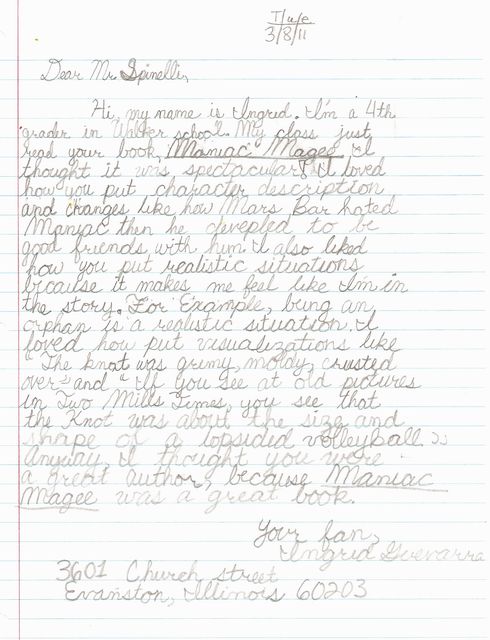 T/u/e
3/8/11
Dear Mr. Spinelli,
Hi, my name is Ingrid. I'm a 4th
grader in Walker school. My class just
read your book, Maniac Magee. I
thought it was spectacular! I loved
how you put character description
and changes like how Mars Bar hated
Maniac then he devepled to be
good friends with him. I also liked
how you put realistic situations
because it makes me feel like I'm in
the story. For Example, being an
orphan is a realistic situation. I
loved how put visualizations like
"The knot was grimy, moldy, crusted
over" and "If you see at old pictures
in Two Mills Times, you see that
the Knot was about the size and
shape of a lopsided volleyball."
Anyway, I thought you were
a great author, because Maniac
Magee was a great book.
Your fan,
Ingrid Guevarra
3601 Church street
Evanston, Illinois 60203